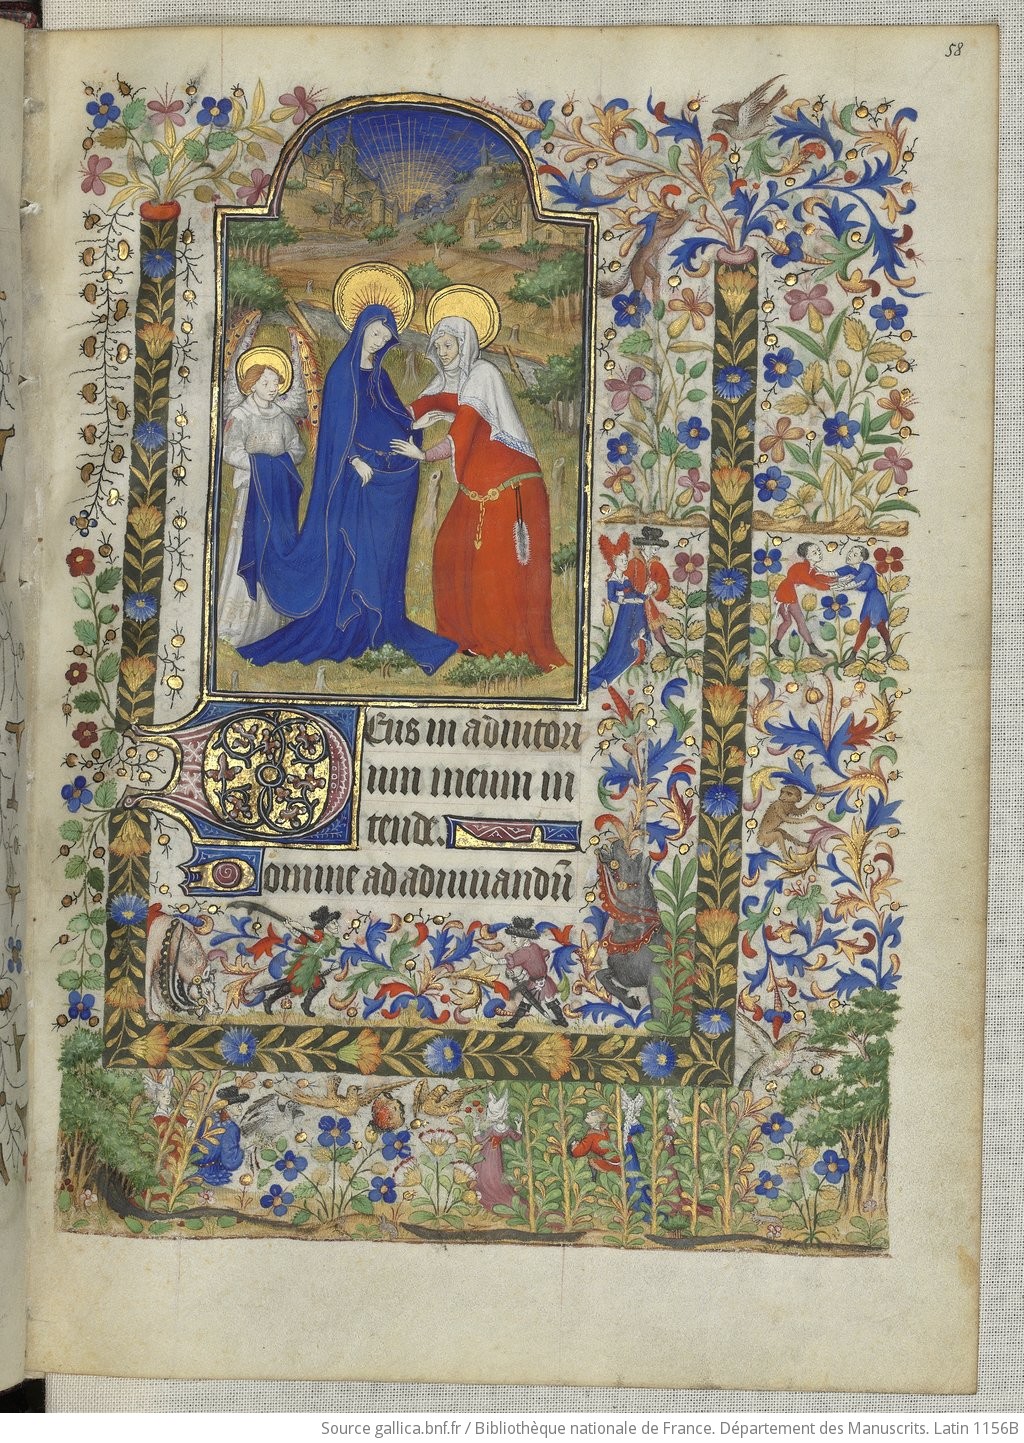 58
Deus in adiutori
um meum in
tende.
Domine ad adiuuandū
Source gallica.bnf.fr / Bibliothèque nationale de France. Département des Manuscrits. Latin 1156B